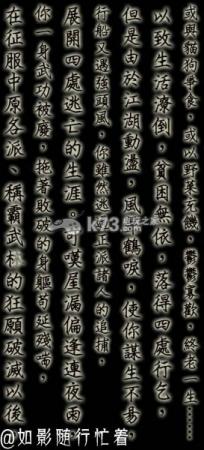 在征服中原各派、稱霸武林的狂願破滅以後，
你一身武功被廢，拖著殘破的身軀苟延殘喘，
展開四處逃亡的生涯。可嘆屋漏偏逢連夜雨，
行船又遇強頭風，你雖然逃過正派諸人的追捕，
但是由於江湖動盪，風聲鶴唳，使你謀生不易，
以致生活潦倒，貧困無依，落得四處行乞，
或與貓狗爭食，或以野菜充饑，鬱鬱寡歡，終老一生……
k73.com
@如影随行忙着